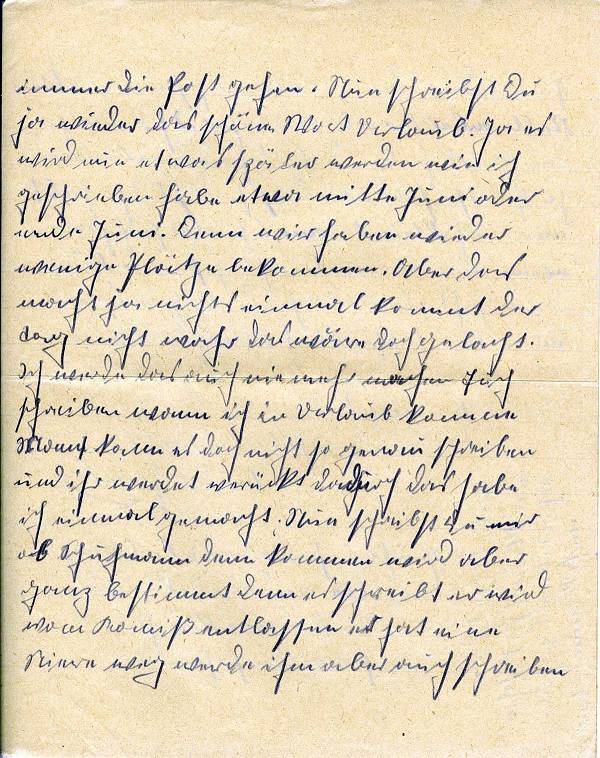 immer die Post gehen. Nun schreibst Du
ja wieder das schöne Wort Urlaub. Ja es
wird nun etwas später werden wie ich
geschrieben habe etwa mitte Juni oder
ende Juni. Denn wir haben wieder
wenige Plätze bekommen. Aber das
macht ja nichts einmal kommt der
Tag nicht wahr das wäre doch gelacht.
Ich werde das auch nie mehr machen Euch
schreiben wann ich in Urlaub komme
Mann kann es doch nicht so genau schreiben
und ihr werdet verückt dadurch das habe
ich einmal gemacht. Nun schreibst Du mir
ob Schuhmann denn kommen wird aber
ganz bestimmt denn es schreibt er wird
vom Komiß entlassen er hat eine
Niere weg werde ihm aber auch schreiben